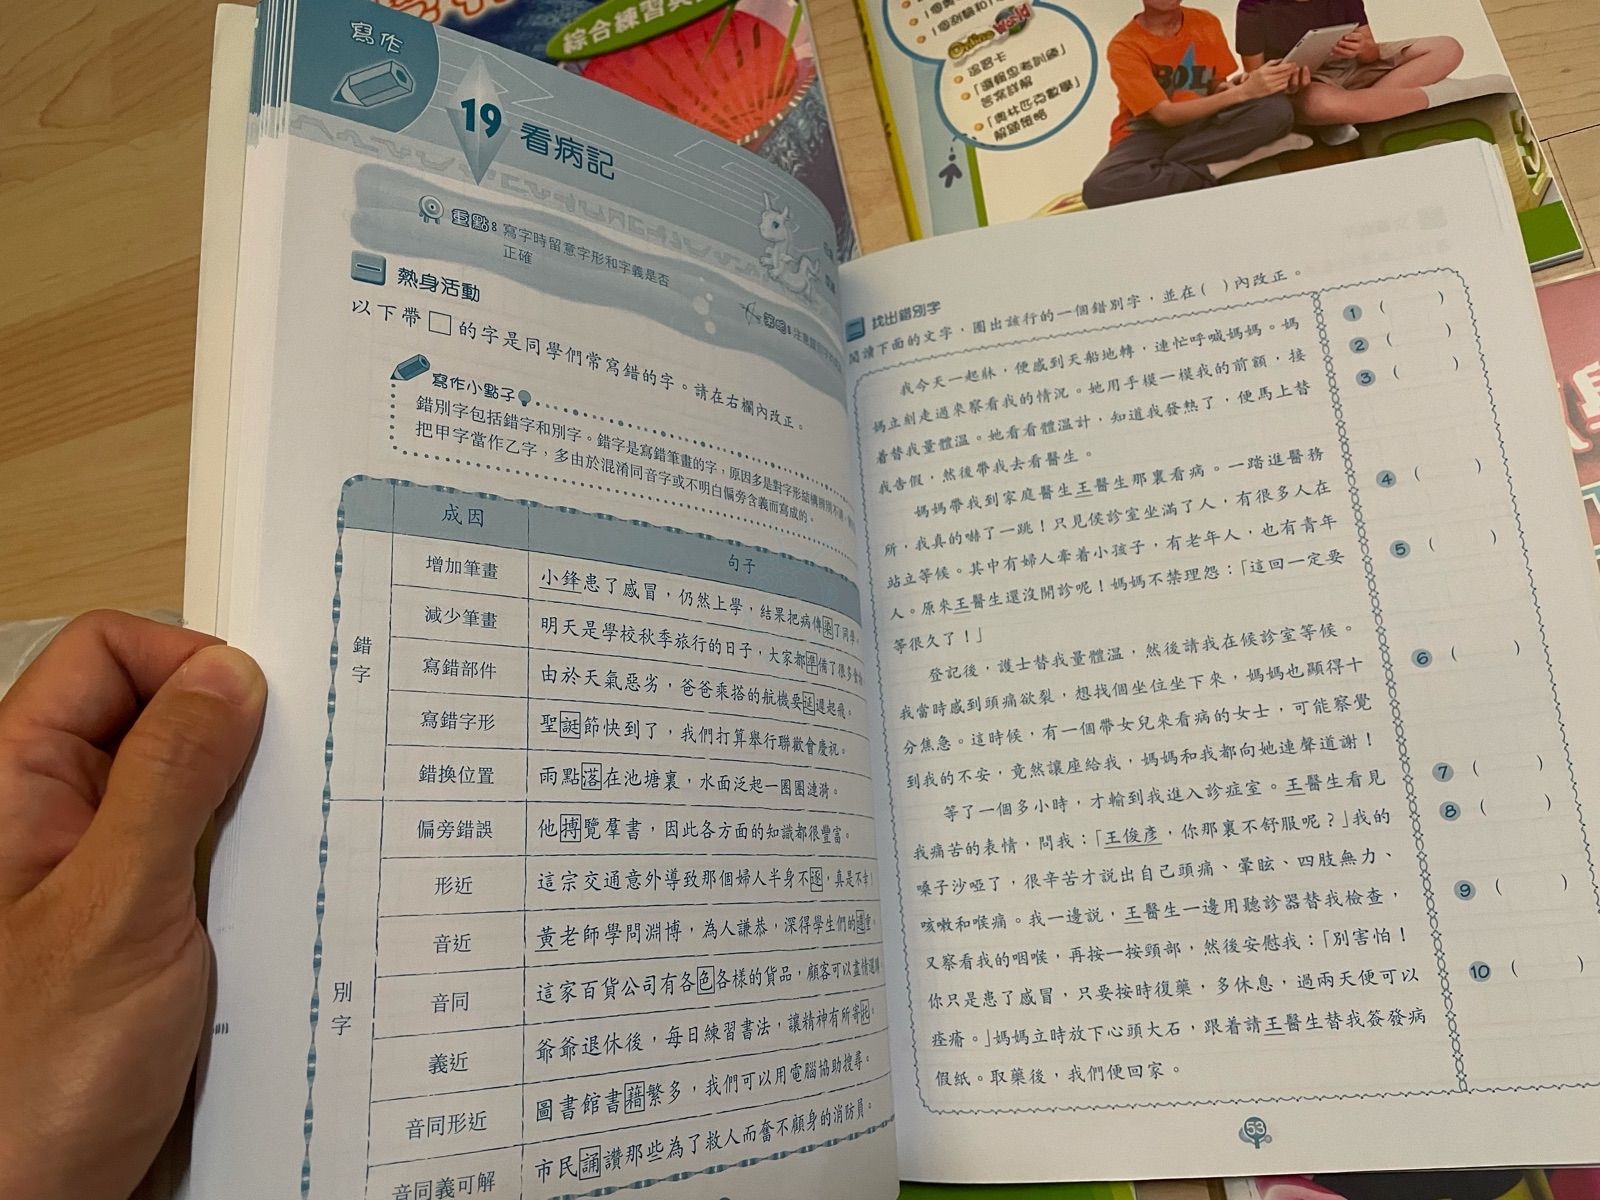 綜合練習
Online World
溫習卡
「邏輯思考訓練」
答案詳解
「奧林匹克數學」
解題策略
寫作
19 看病記
重點：寫字時留意字形和字義是否
正確
策略：注意
一 熱身活動
以下帶□的字是同學們常寫錯的字。請在右欄內改正。
寫作小點子
錯別字包括錯字和別字。錯字是寫錯筆畫的字，原因多是對字形結構
把甲字當作乙字，多由於混淆同音字或不明白偏旁含義而寫成的。
成因 句子
錯字
增加筆畫 小鋒患了感冒，仍然上學，結果把病傳染了同學。
減少筆畫 明天是學校秋季旅行的日子，大家都準備了很多
寫錯部件 由於天氣惡劣，爸爸乘搭的航機要延遲起飛。
寫錯字形 聖誕節快到了，我們打算舉行聯歡會慶祝。
錯換位置 雨點落在池塘裏，水面泛起一圈圈漣漪。
別字
偏旁錯誤 他摶覽羣書，因此各方面的知識都很豐富。
形近 這宗交通意外導致那個婦人半身不逐，真是不幸！
音近 黃老師學問淵博，為人謙恭，深得學生們的遵重。
音同 這家百貨公司有各色各樣的貨品，顧客可以盡情選購
義近 爺爺退休後，每日練習書法，讓精神有所寄託。
音同形近 圖書館書藉繁多，我們可以用電腦協助搜尋。
音同義可解 市民誦讚那些為了救人而奮不顧身的消防員。
二 找出錯別字
閱讀下面的文字，圈出該行的一個錯別字，並在（ ）內改正。
我今天一起牀，便感到天船地轉，連忙呼喊媽媽。媽
媽立刻走過來察看我的情況。她用手模一模我的前額，接
着替我量體溫。她看看體溫計，知道我發熱了，便馬上替
我告假，然後帶我去看醫生。
媽媽帶我到家庭醫生王醫生那裏看病。一踏進醫務
所，我真的嚇了一跳！只見侯診室坐滿了人，有很多人在
站立等候。其中有婦人牽着小孩子，有老年人，也有青年
人。原來王醫生還沒開診呢！媽媽不禁理怨：「這回一定要
等很久了！」
登記後，護士替我量體溫，然後請我在候診室等候。
我當時感到頭痛欲裂，想找個坐位坐下來，媽媽也顯得十
分焦急。這時候，有一個帶女兒來看病的女士，可能察覺
到我的不安，竟然讓座給我，媽媽和我都向她連聲道謝！
等了一個多小時，才輸到我進入診症室。王醫生看見
我痛苦的表情，問我：「王俊彥，你那裏不舒服呢？」我的
嗓子沙啞了，很辛苦才說出自己頭痛、暈眩、四肢無力、
咳嗽和喉痛。我一邊說，王醫生一邊用聽診器替我檢查，
又察看我的咽喉，再按一按頸部，然後安慰我：「別害怕！
你只是患了感冒，只要按時復藥，多休息，過兩天便可以
痊癒。」媽媽立時放下心頭大石，跟着請王醫生替我簽發病
假紙。取藥後，我們便回家。
1（ ）
2（ ）
3（ ）
4（ ）
5（ ）
6（ ）
7（ ）
8（ ）
9（ ）
10（ ）
53